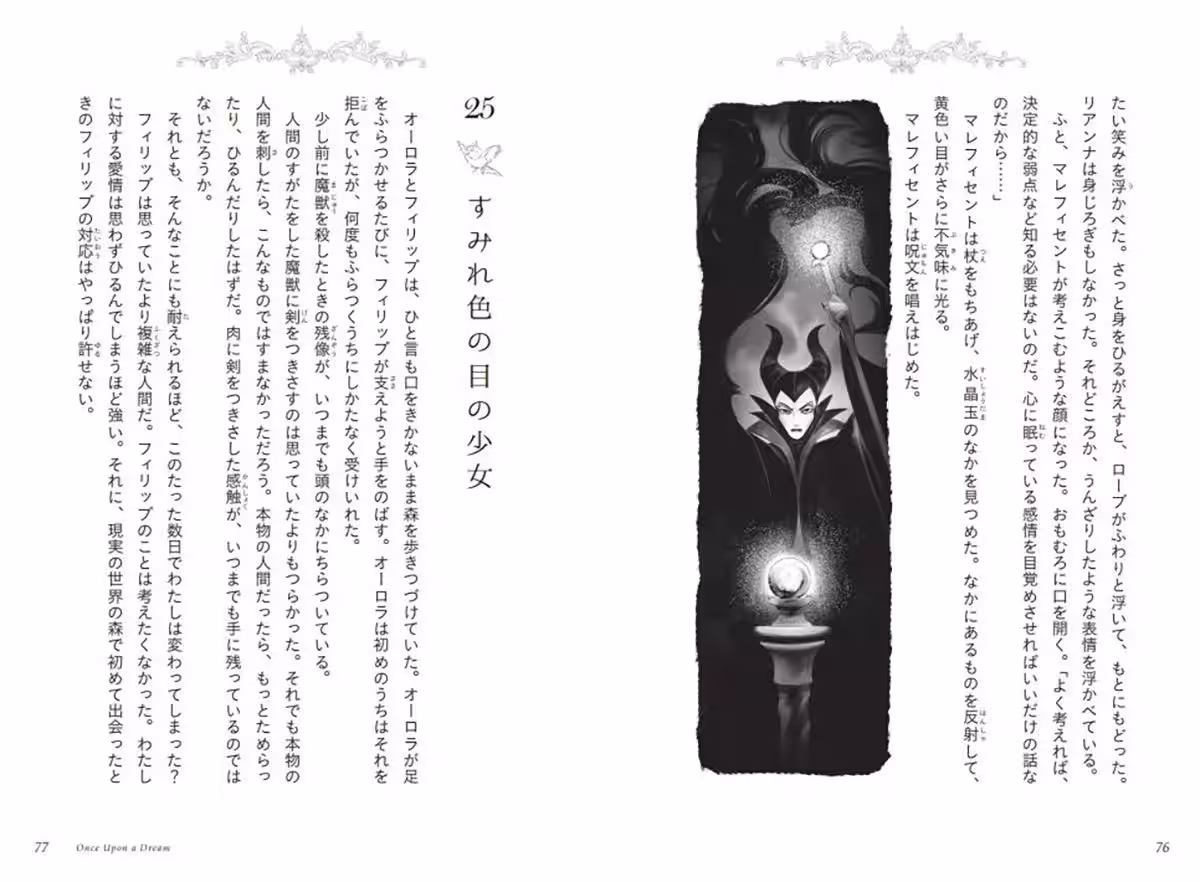 たい笑みを浮かべた。さっと身をひるがえすと、ローブがふわりと浮いて、もとにもどった。
リアンナは身じろぎもしなかった。それどころか、うんざりしたような表情を浮かべている。
ふと、マレフィセントが考えこむような顔になった。おもむろに口を開く。「よく考えれば、
決定的な弱点など知る必要はないのだ。心に眠っている感情を目覚めさせればいいだけの話な
のだから……」
マレフィセントは杖をもちあげ、水晶玉のなかを見つめた。なかにあるものを反射して、
黄色い目がさらに不気味に光る。
マレフィセントは呪文を唱えはじめた。
76
25
すみれ色の目の少女
オーロラとフィリップは、ひと言も口をきかないまま森を歩きつづけていた。オーロラが足
をふらつかせるたびに、フィリップが支えようと手をのばす。オーロラは初めのうちはそれを
拒んでいたが、何度もふらつくうちにしかたなく受けいれた。
少し前に魔獣を殺したときの残像が、いつまでも頭のなかにちらついている。
人間のすがたをした魔獣に剣をつきさすのは思っていたよりもつらかった。それでも本物の
人間を刺したら、こんなものではすまなかっただろう。本物の人間だったら、もっとためらっ
たり、ひるんだりしたはずだ。肉に剣をつきさした感触が、いつまでも手に残っているのでは
ないだろうか。
それとも、そんなことにも耐えられるほど、このたった数日でわたしは変わってしまった?
フィリップは思っていたより複雑な人間だ。フィリップのことは考えたくなかった。わたし
に対する愛情は思わずひるんでしまうほど強い。それに、現実の世界の森で初めて出会ったと
きのフィリップの対応はやっぱり許せない。
77 Once Upon a Dream